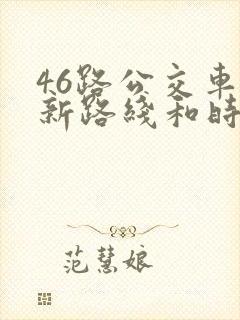 46路公交車
新路綫和時
范慧娘